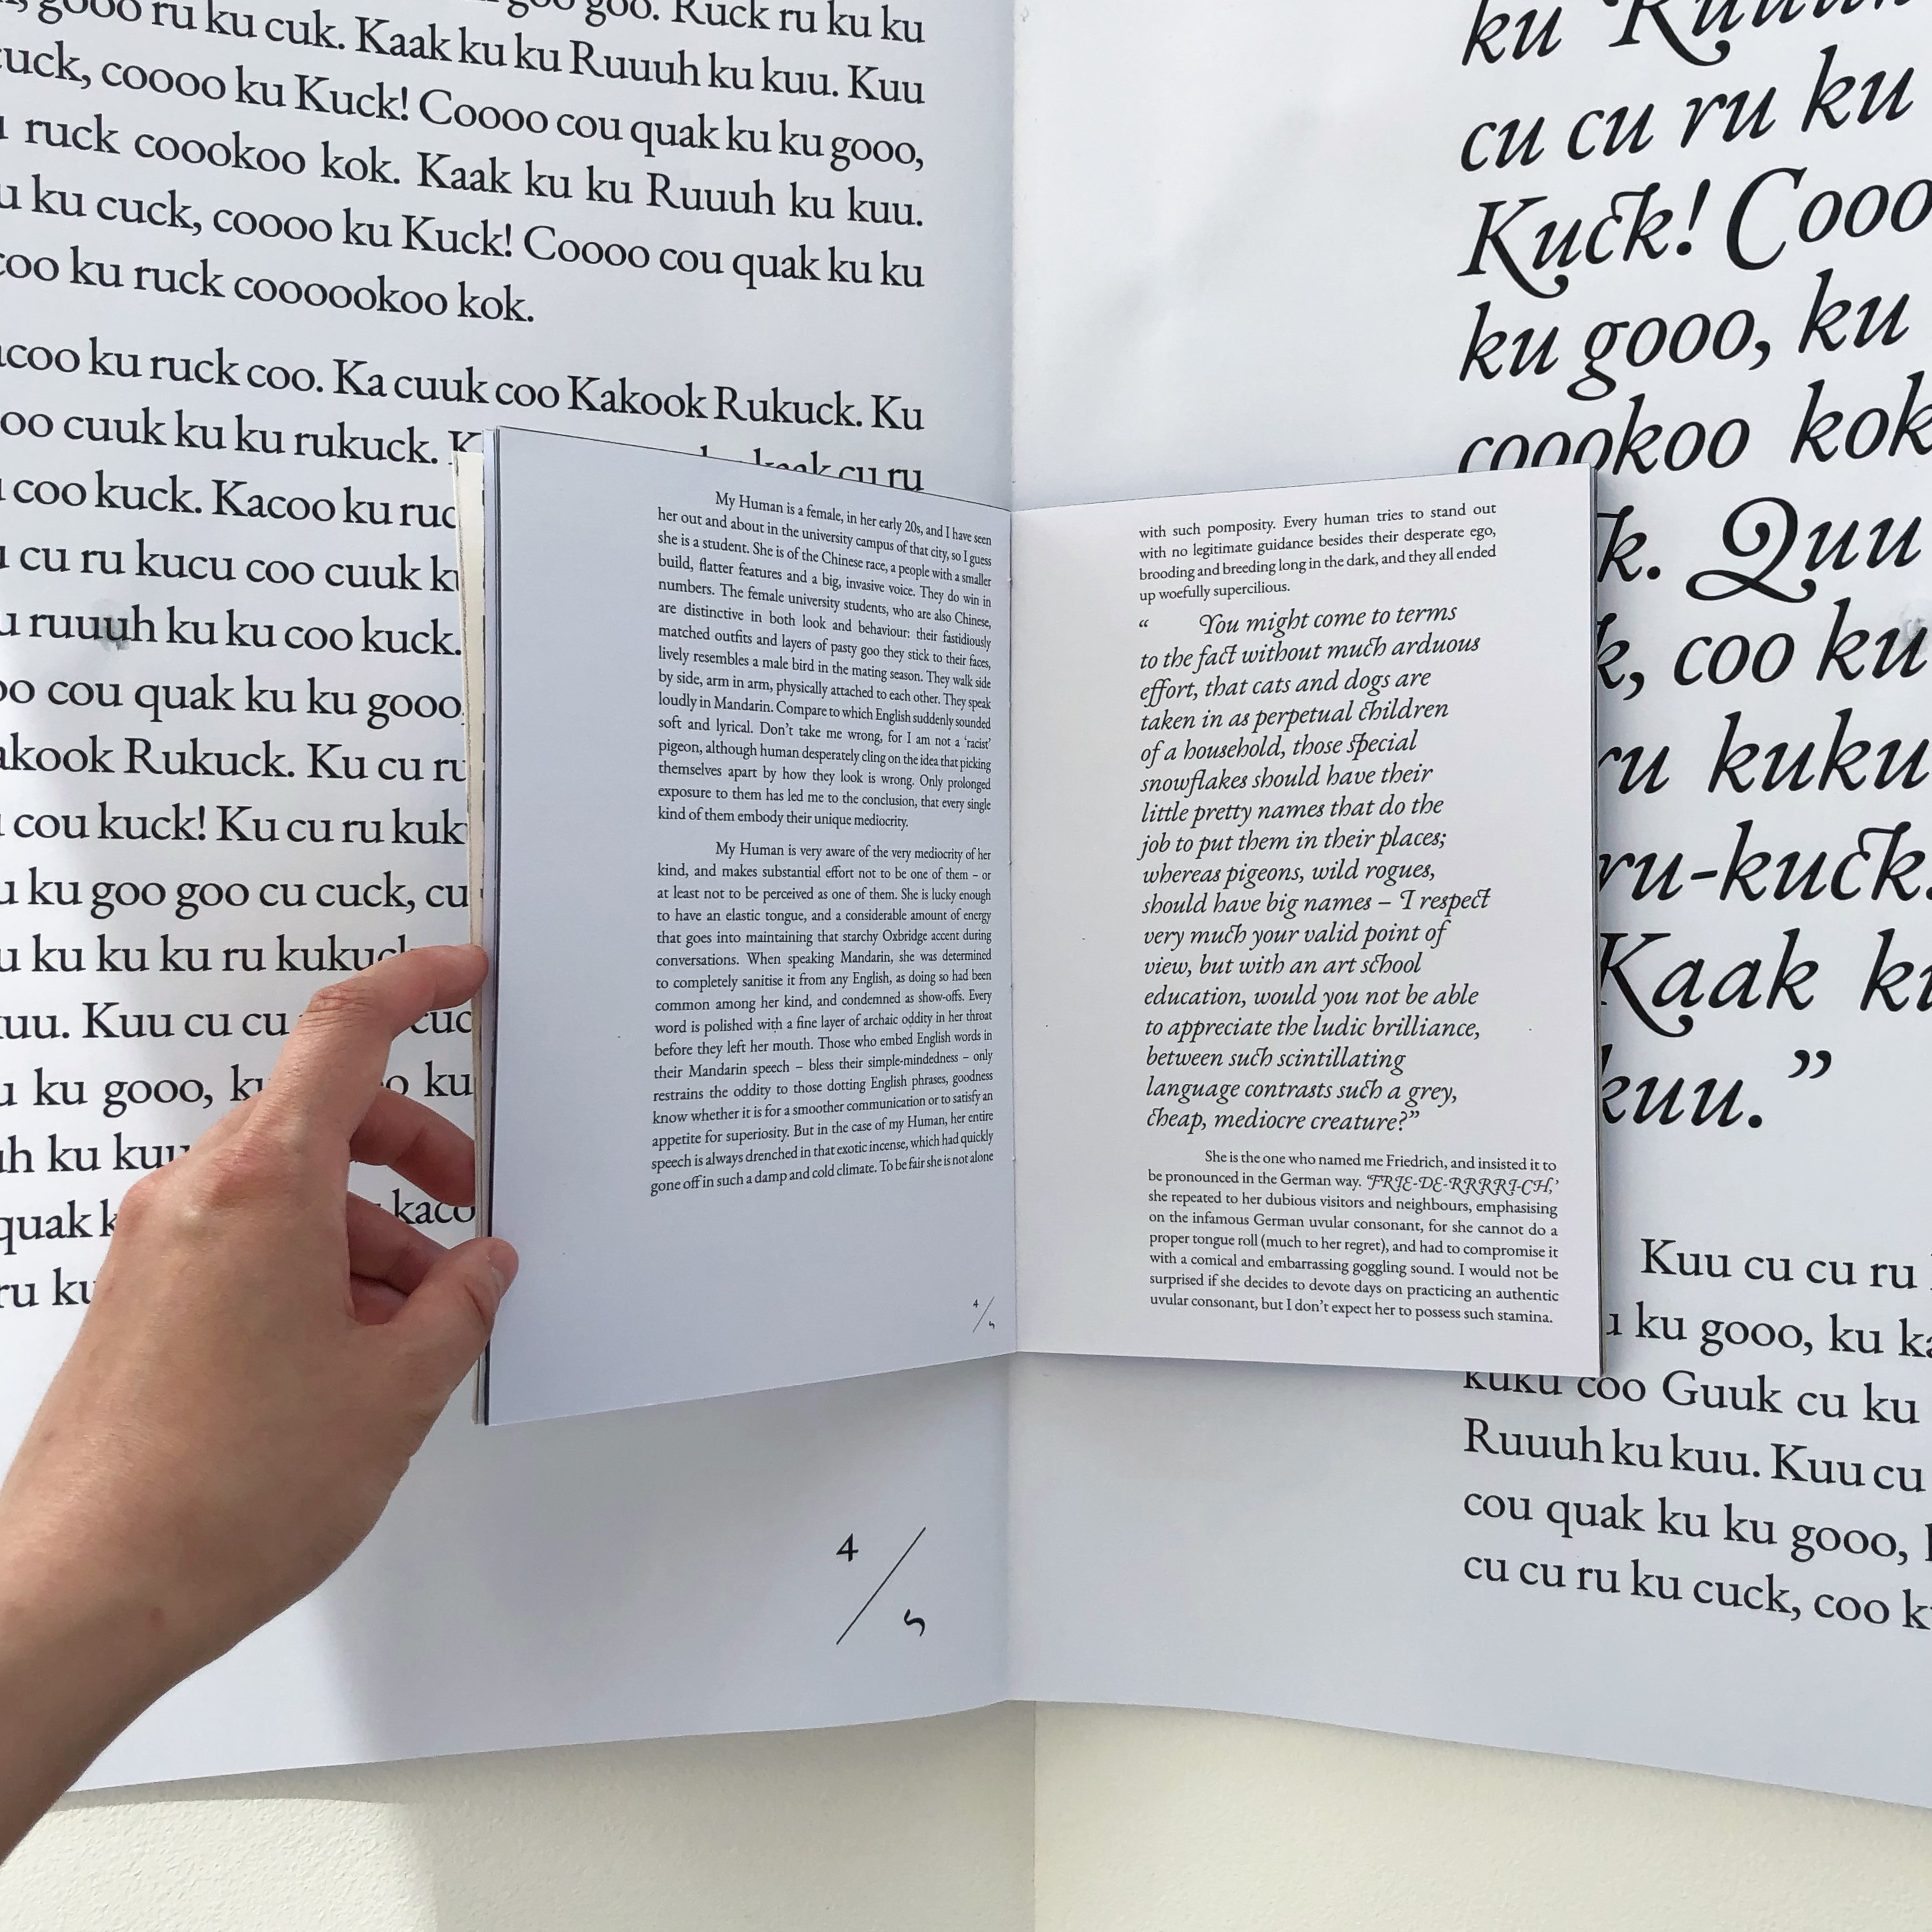 goo goo. Ruck ru ku ku
gooo ru ku cuk. Kaak ku ku Ruuuh ku kuu. Kuu
cuck, coooo ku Kuck! Coooo cou quak ku ku gooo,
ruck coookoo kok. Kaak ku ku Ruuuh ku kuu.
ku cuck, coooo ku Kuck! Coooo cou quak ku ku
coo ku ruck coooookoo kok.
coo ku ruck coo. Ka cuuk coo Kakook Rukuck. Ku
oo cuuk ku ku rukuck.
kaak cu ru
coo kuck. Kacoo ku ruc
cu ru kucu coo cuuk
ruuuh ku ku coo kuck.
cou quak ku ku gooo
akook Rukuck. Ku cu ru
cou kuck! Ku cu ru kuk
ku goo goo cu cuck, cu
ku ku ku ru kukuck
uu. Kuu cu cu cuc
ku gooo, ku
ku kuu
quak kaco
ru ku
4
5
My Human is a female, in her early 20s, and I have seen
her out and about in the university campus of that city, so I guess
she is a student. She is of the Chinese race, a people with a smaller
build, flatter features and a big, invasive voice. They do win in
numbers. The female university students, who are also Chinese,
are distinctive in both look and behaviour: their fastidiously
matched outfits and layers of pasty goo they stick to their faces,
lively resembles a male bird in the mating season. They walk side
by side, arm in arm, physically attached to each other. They speak
loudly in Mandarin. Compare to which English suddenly sounded
soft and lyrical. Don't take me wrong, for I am not a 'racist'
pigeon, although human desperately cling on the idea that picking
themselves apart by how they look is wrong. Only prolonged
exposure to them has led me to the conclusion, that every single
kind of them embody their unique mediocrity.
My Human is very aware of the very mediocrity of her
kind, and makes substantial effort not to be one of them – or
at least not to be perceived as one of them. She is lucky enough
to have an elastic tongue, and a considerable amount of energy
that goes into maintaining that starchy Oxbridge accent during
conversations. When speaking Mandarin, she was determined
to completely sanitise it from any English, as doing so had been
common among her kind, and condemned as show-offs. Every
word is polished with a fine layer of archaic oddity in her throat
before they left her mouth. Those who embed English words in
their Mandarin speech – bless their simple-mindedness – only
restrains the oddity to those dotting English phrases, goodness
know whether it is for a smoother communication or to satisfy an
appetite for superiosity. But in the case of my Human, her entire
speech is always drenched in that exotic incense, which had quickly
gone off in such a damp and cold climate. To be fair she is not alone
4
5
with such pomposity. Every human tries to stand out
with no legitimate guidance besides their desperate ego,
brooding and breeding long in the dark, and they all ended
up woefully supercilious.
“ You might come to terms
to the fact without much arduous
effort, that cats and dogs are
taken in as perpetual children
of a household, those special
snowflakes should have their
little pretty names that do the
job to put them in their places;
whereas pigeons, wild rogues,
should have big names – I respect
very much your valid point of
view, but with an art school
education, would you not be able
to appreciate the ludic brilliance,
between such scintillating
language contrasts such a grey,
cheap, mediocre creature?”
She is the one who named me Friedrich, and insisted it to
be pronounced in the German way. ‘FRIE-DE-RRRRI-CH,’
she repeated to her dubious visitors and neighbours, emphasising
on the infamous German uvular consonant, for she cannot do a
proper tongue roll (much to her regret), and had to compromise it
with a comical and embarrassing goggling sound. I would not be
surprised if she decides to devote days on practicing an authentic
uvular consonant, but I don't expect her to possess such stamina.
ku Ruuuh
cu cu ru ku
Kuck! Cooo
ku gooo, ku
coookoo kok
k. Quu
k, coo ku
ru kuku
ru-kuck.
Kaak ku
kuu. ”
Kuu cu cu ru
ku gooo, ku ka
kuku coo Guuk cu ku
Ruuuh ku kuu. Kuu cu
cou quak ku ku gooo,
cu cu ru ku cuck, coo k